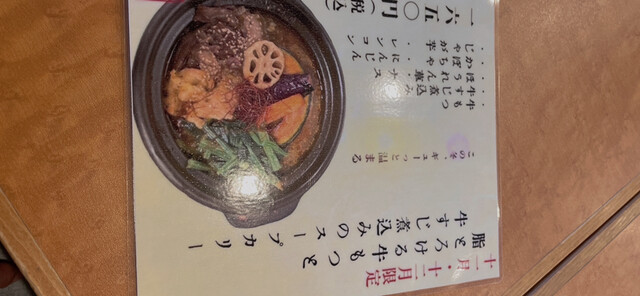 十一月・十二月限定
脂とろける牛もつと
牛すじ煮込みのスープカリー
この冬、ギューっと温まる
・牛もつ
・牛すじ煮込み
・ほうれん草・ナス
・かぼちゃ・にんじん
・じゃが芋・レンコン
一六五〇円(税込)